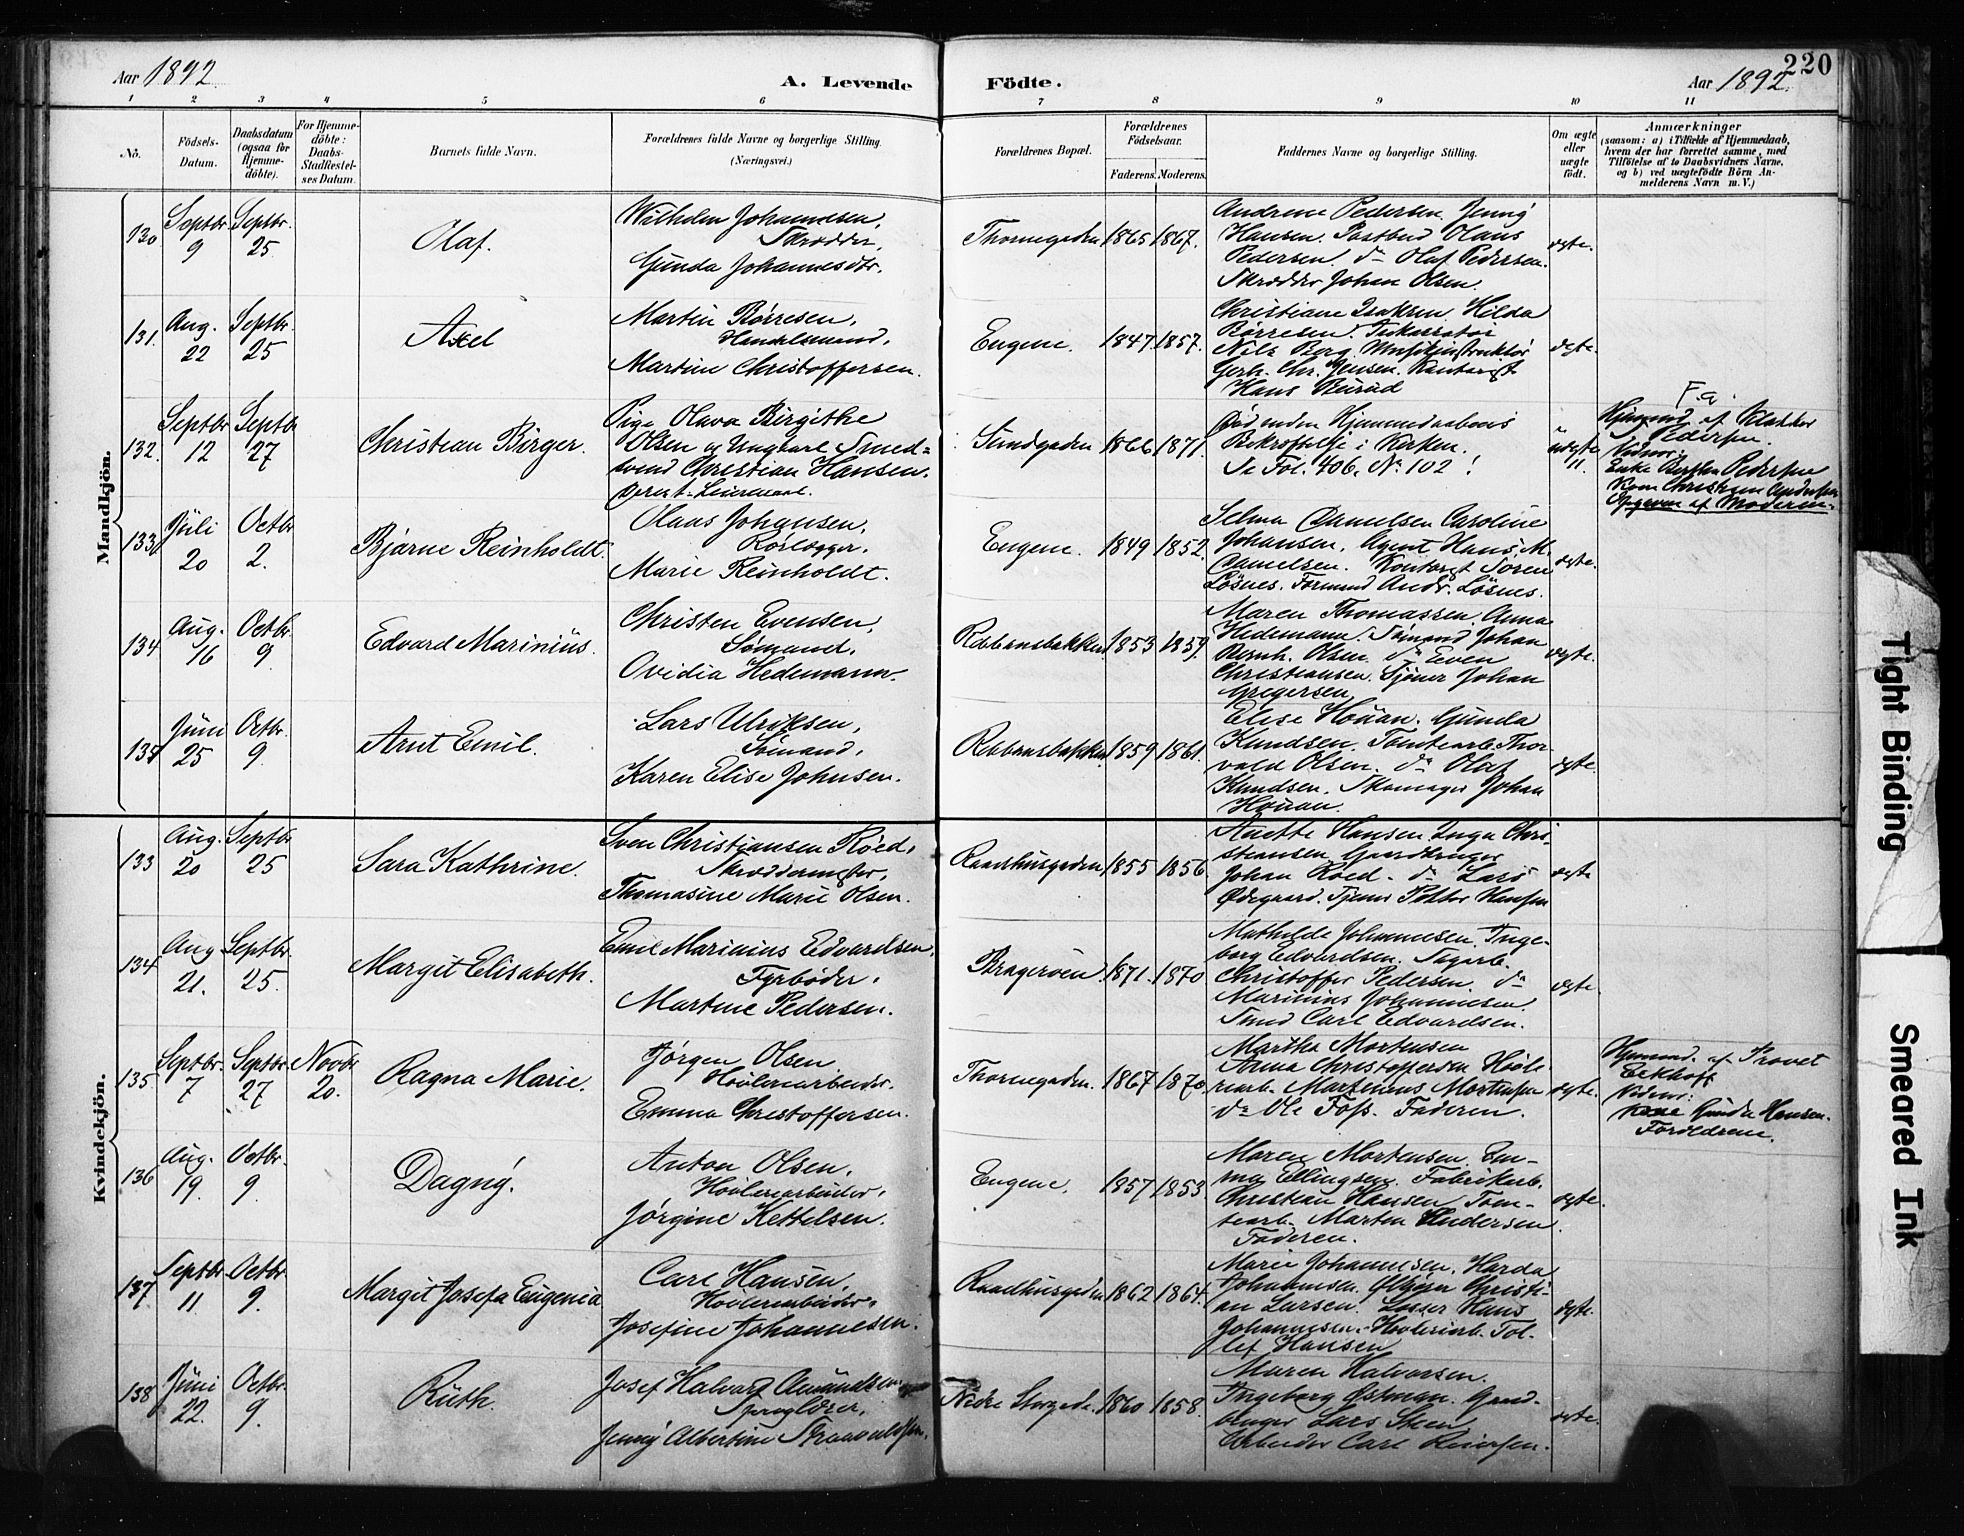 220
Aar 1892 A. Levende Födte. Aar 1892.
1 2 3 4 5 6 7 8 9 10 11
No.
Födsels-
Datum.
Daabsdatum
(ogsaa for
Hjemme-
döbte).
For Hjemme-
döbte:
Daabs-
Stadfæstel-
ses Datum.
Barnets fulde Navn.
Forældrenes fulde Navne og borgerlige Stilling
(Næringsvei.)
Forældrenes Bopæl.
Forældrenes
Födselsaar.
Faderens. Moderens.
Faddernes Navne og borgerlige Stilling.
Om ægte
eller
uægte
födt.
Anmærkninger
(saasom: a) i Tilfælde af Hjemmedaab,
hvem der har forrettet samme, med
Tilföielse af to Daabsvidners Navne,
og b) ved uægtefödte Börn An-
melderens Navn m. V.)
Mandkjön.
130 Septbr. 9 Septbr. 25 Olaf.
Wilhelm Johannesen,
Skrædder,
Gunda Johannesdtr.
Thornegaden 1865 1867.
Andrene Pedersen. Jenny
Hansen. Postbud Olaus
Pedersen. do Olaf Pedersen.
Skrædder Johan Olsen.
ægte.
131. Aug. 22 Septbr. 25 Axel
Martin Børresen,
Handelsmand,
Martine Christoffersen.
Eugene. 1847 1857.
Christiane Isaksen. Hilda
Børresen.
Nils Berg. Musikinstruktør
Gerh. Chr. Jensen. Kontorist
Hans Burud
ægte.
132. Septbr. 12 Septbr. 27 Christian Birger.
Pige Olava Birgithe
Olsen og Ungkarl Smed-
svend Christian Hansen.
Sundgaden 1866 1871.
Død inden Hjemmedaabens
Bekræftelse i Kirken.
Se Fol. 406. No 102!
uægte
F.a.
Hjemmd. af Klokker
Pedersen.
Vidner:
Enke Berthe Pedersen
Kone Christiane Andersen
Opgiven af Moderen.
133 Juli 20 Octbr. 2. Bjarne Reinholdt.
Olaus Johansen,
Rørlægger,
Marie Reinholdt.
Eugene. 1849 1852.
Selma Danielsen Caroline
Johansen. Agent Hans M.
Danielsen. Kontorist Sören
Løsnes. Formand Andr. Løsnes.
ægte.
134 Aug. 16 Octbr. 9 Edvard Marinius.
Christen Evensen,
Sømand,
Ovidia Hedemann.
Rebbansbakken 1853 1859.
Maren Thomassen. Anna
Hedemann. Sømand Johan
Bernh. Olsen. do Even
Christiansen. Sjömd Johan
Gregersen
ægte.
135 Juni 25 Octbr. 9. Arnt Emil.
Lars Ulriksen,
Sømand,
Karen Elise Johnsen.
Rebbansbakken 1859 1861.
Elise Houan. Gunda
Knudsen. Tomtearb. Thor-
vald Olsen. do Olaf
Knudsen. Skomager Johan
Houan.
ægte.
Kvindekjön.
133 Aug. 20 Septbr. 25 Sara Kathrine.
Sven Christiansen Röed,
Skræddermester,
Thomasine Marie Olsen.
Raadhusgaden 1855 1856
Anette Hansen Inga Chri-
stiansen Gaardbruger
Johan Röed. do Lars
Ødegaard. Tjener Petter Hansen
ægte
134 Aug 21. Septbr. 25. Margit Elisabeth.
Emil Marinius Edvardsen,
Fyrbøder,
Martine Pedersen.
Bragerøen 1871. 1870
Mathilde Johannesen. Inge-
borg Edvardsen. Sagarb.
Christoffer Pedersen. do
Marinius Johannesen
Smed Carl Edvardsen.
ægte.
135 Septbr. 7 Septbr. 27 Novbr 20. Ragna Marie.
Jørgen Olsen
Høvleriarbeider.
Emma Christoffersen.
Thornegaden. 1867 1870.
Martha Mortensen
Anna Christoffersen Høvle-
riarb. Martinius Mortensen
do Ole Foss. Faderen.
ægte.
Hjemmd. af Provst
Eckhoff
Vidner:
Kone Gunda Hansen.
Forældrene.
136 Aug. 19. Octbr. 9. Dagny.
Anton Olsen,
Høvleriarbeider,
Jørgine Kettelsen.
Eugene. 1857 1853.
Maren Mortensen. Em-
ma Ellingsen. Fabrikarb.
Christian Hansen Tom-
tearb. Marten Andersen
Faderen.
ægte.
137 Septbr. 11 Octbr 9. Margit Josefa Eugenia
Carl Hansen,
Høvleriarbeider,
Josefine Johannesen.
Raadhusgaden 1862 1864.
Marie Johannesen. Harda
Johannesen. Christi-
an Larsen. Losser Hans
Johannesen. Høvleriarb. Tol-
lef Hansen
ægte.
138 Juni 22. Octbr. 9. Ruth.
Josef Halvard Amundsen
Jenny Albertine
Nedre Storgade. 1860 1858.
Maren Halvorsen.
Ingeborg Østman. Gaard-
bruger Lars Steen
Arbeider Carl Reiersen.
ægte.
Tight Binding
Smeared Ink